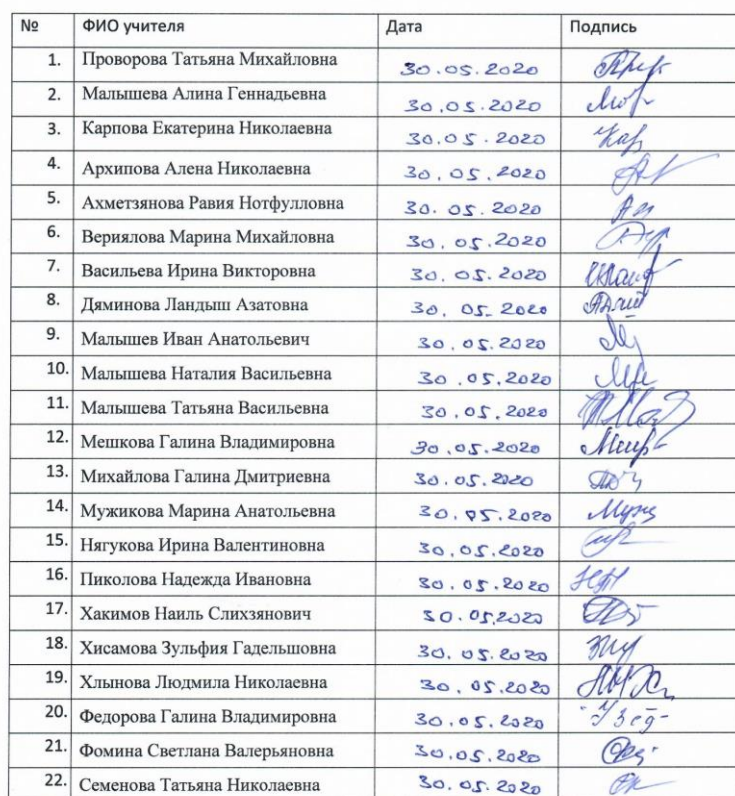 № ФИО учителя Дата Подпись
1. Проворова Татьяна Михайловна 30.05.2020
2. Малышева Алина Геннадьевна 30.05.2020
3. Карпова Екатерина Николаевна 30.05.2020
4. Архипова Алена Николаевна 30.05.2020
5. Ахметзянова Равия Нотфулловна 30.05.2020
6. Вериялова Марина Михайловна 30.05.2020
7. Васильева Ирина Викторовна 30.05.2020
8. Дяминова Ландыш Азатовна 30.05.2020
9. Малышев Иван Анатольевич 30.05.2020
10. Малышева Наталия Васильевна 30.05.2020
11. Малышева Татьяна Васильевна 30.05.2020
12. Мешкова Галина Владимировна 30.05.2020
13. Михайлова Галина Дмитриевна 30.05.2020
14. Мужикова Марина Анатольевна 30.05.2020
15. Нягукова Ирина Валентиновна 30.05.2020
16. Пиколова Надежда Ивановна 30.05.2020
17. Хакимов Наиль Слихзянович 30.05.2020
18. Хисамова Зульфия Гадельшовна 30.05.2020
19. Хлынова Людмила Николаевна 30.05.2020
20. Федорова Галина Владимировна 30.05.2020
21. Фомина Светлана Валерьяновна 30.05.2020
22. Семенова Татьяна Николаевна 30.05.2020